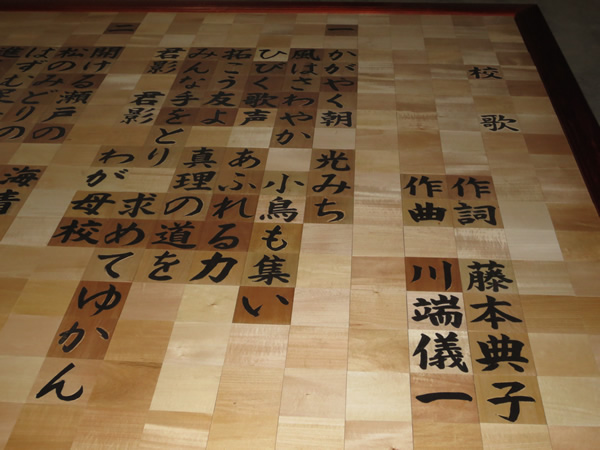 校歌
作詞 藤本典子
作曲 川端儀一
一
かがやく朝 光みち
風はさわやか 小鳥も集い
ひびく歌声 あふれる力
拓こう友よ 真理の道を
みんな手をとり 求めてゆかん
君影 君影 わが母校
二
開ける瀬戸の 海
松のみどりの
はずむ
進